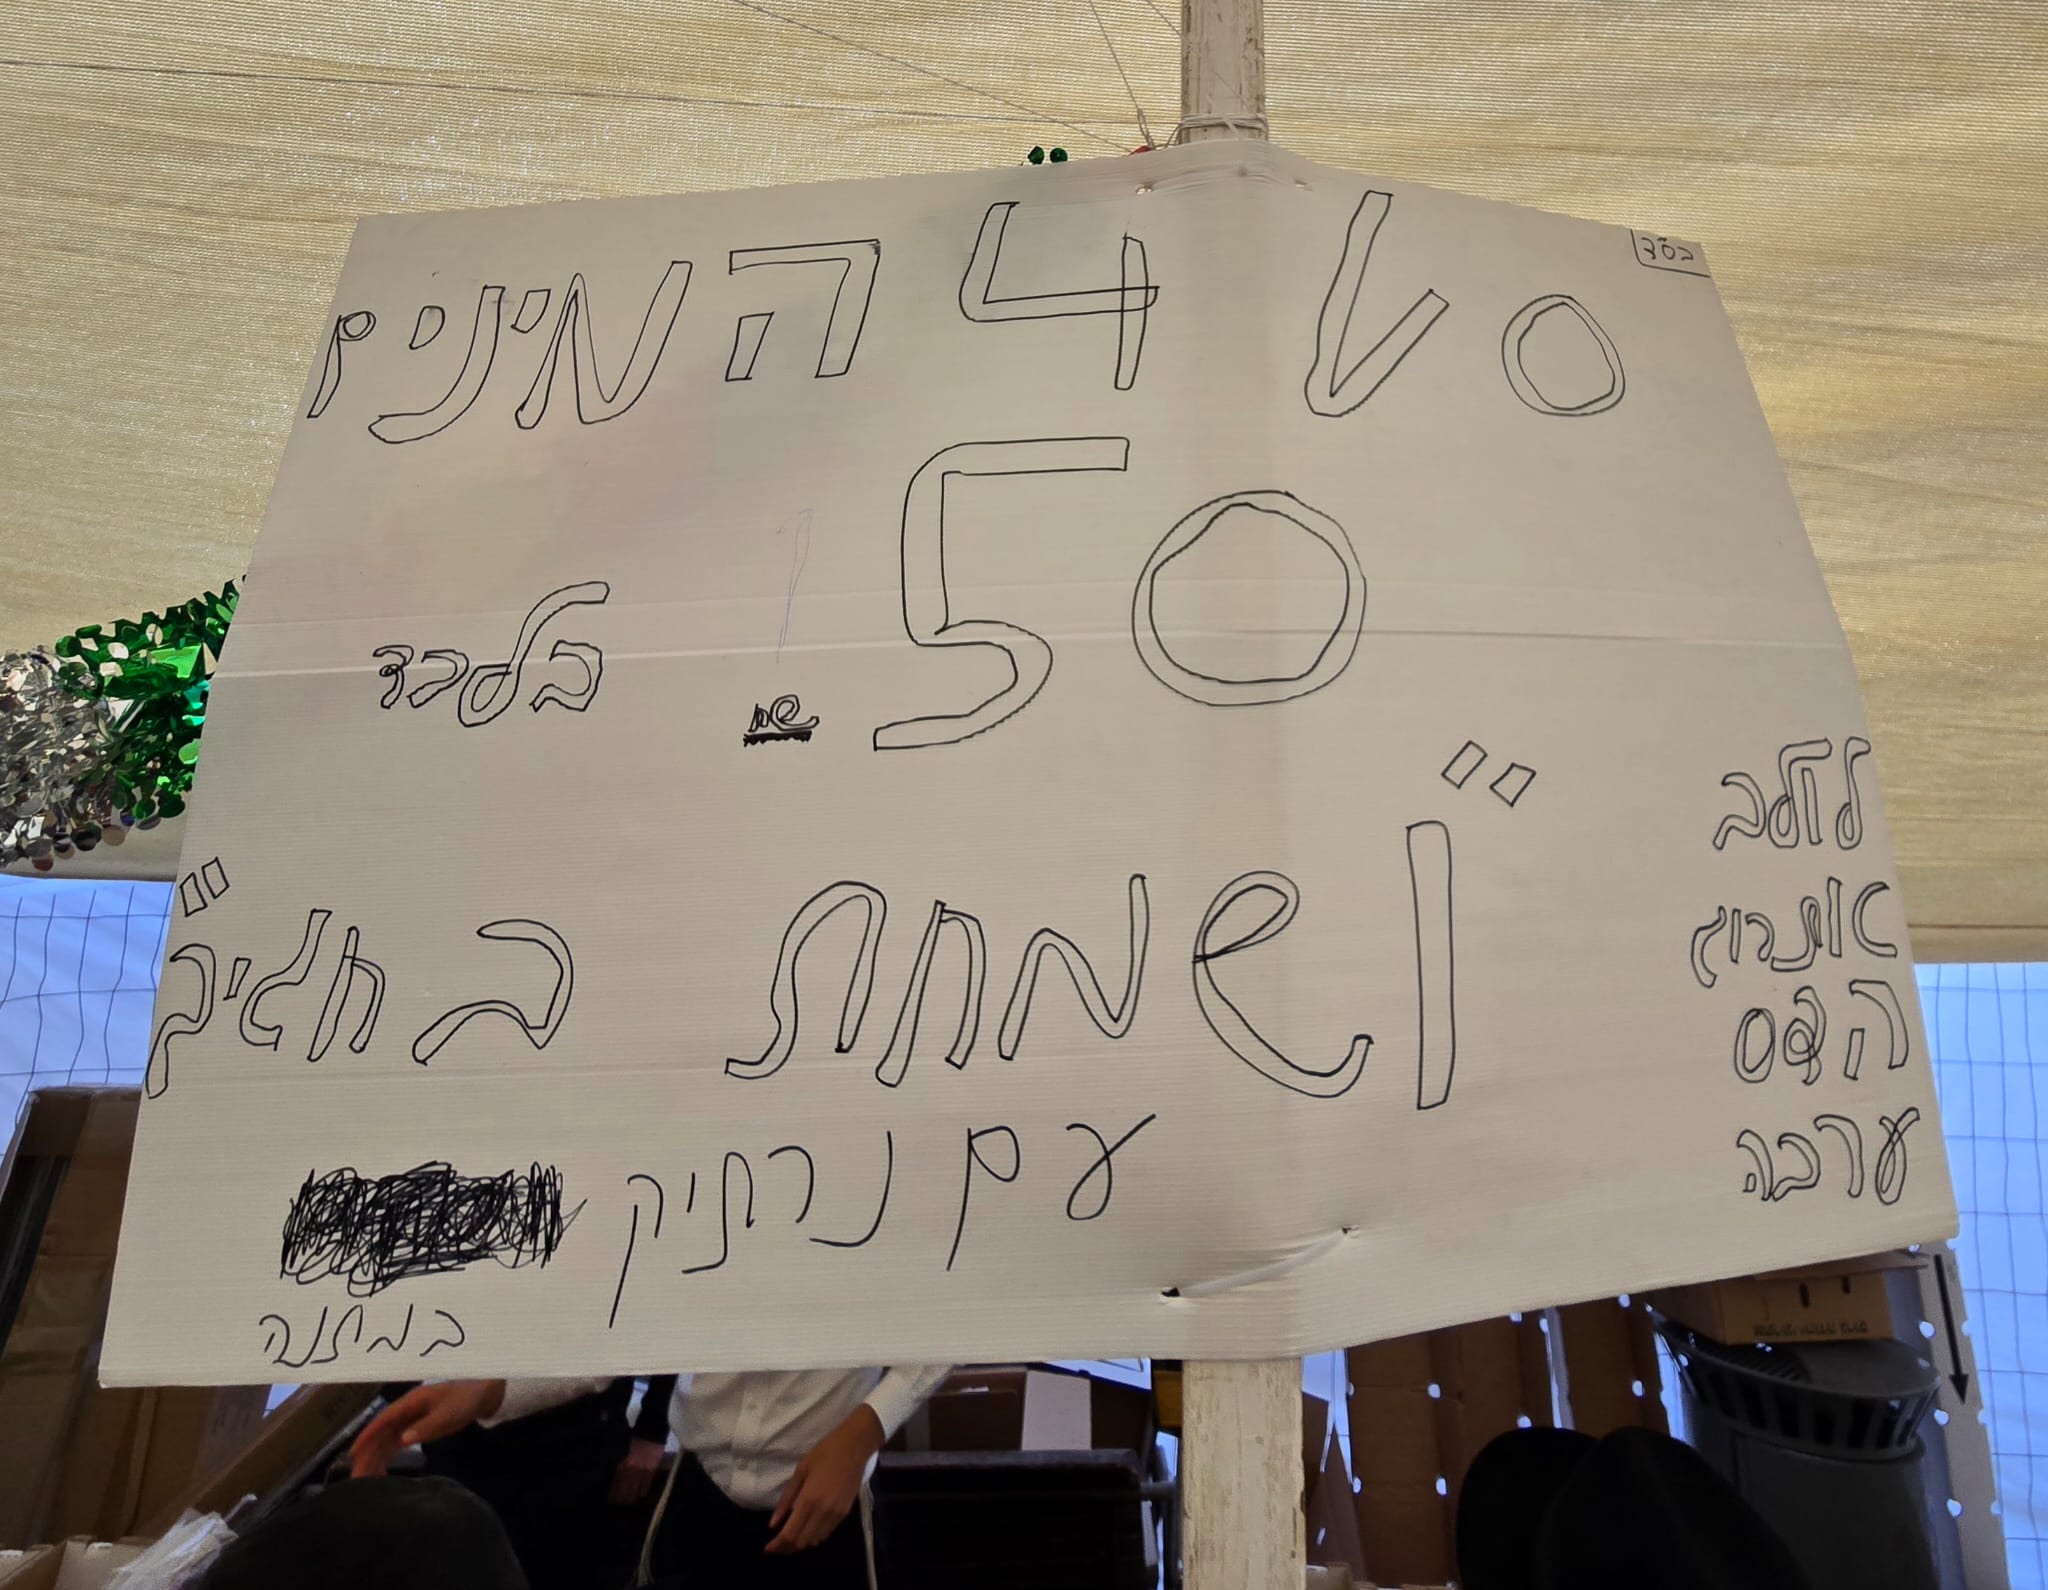 בס"ד
סט 4 המינים
50 ש"ח בלבד
"ושמחת בחגיך"
לולב
אתרוג
הדס
ערבה
עם נרתיק
במתנה